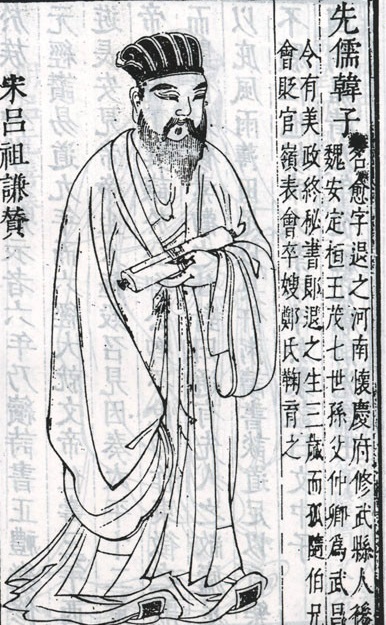 先儒韓子 名愈字退之河南懷慶府修武縣人後
魏安定桓王茂七世孫父仲卿為武昌
令有美政終秘書郎退之生三歲而孤隨伯兄
會貶官嶺表會卒嫂鄭氏鞠育之
宋呂祖謙贊